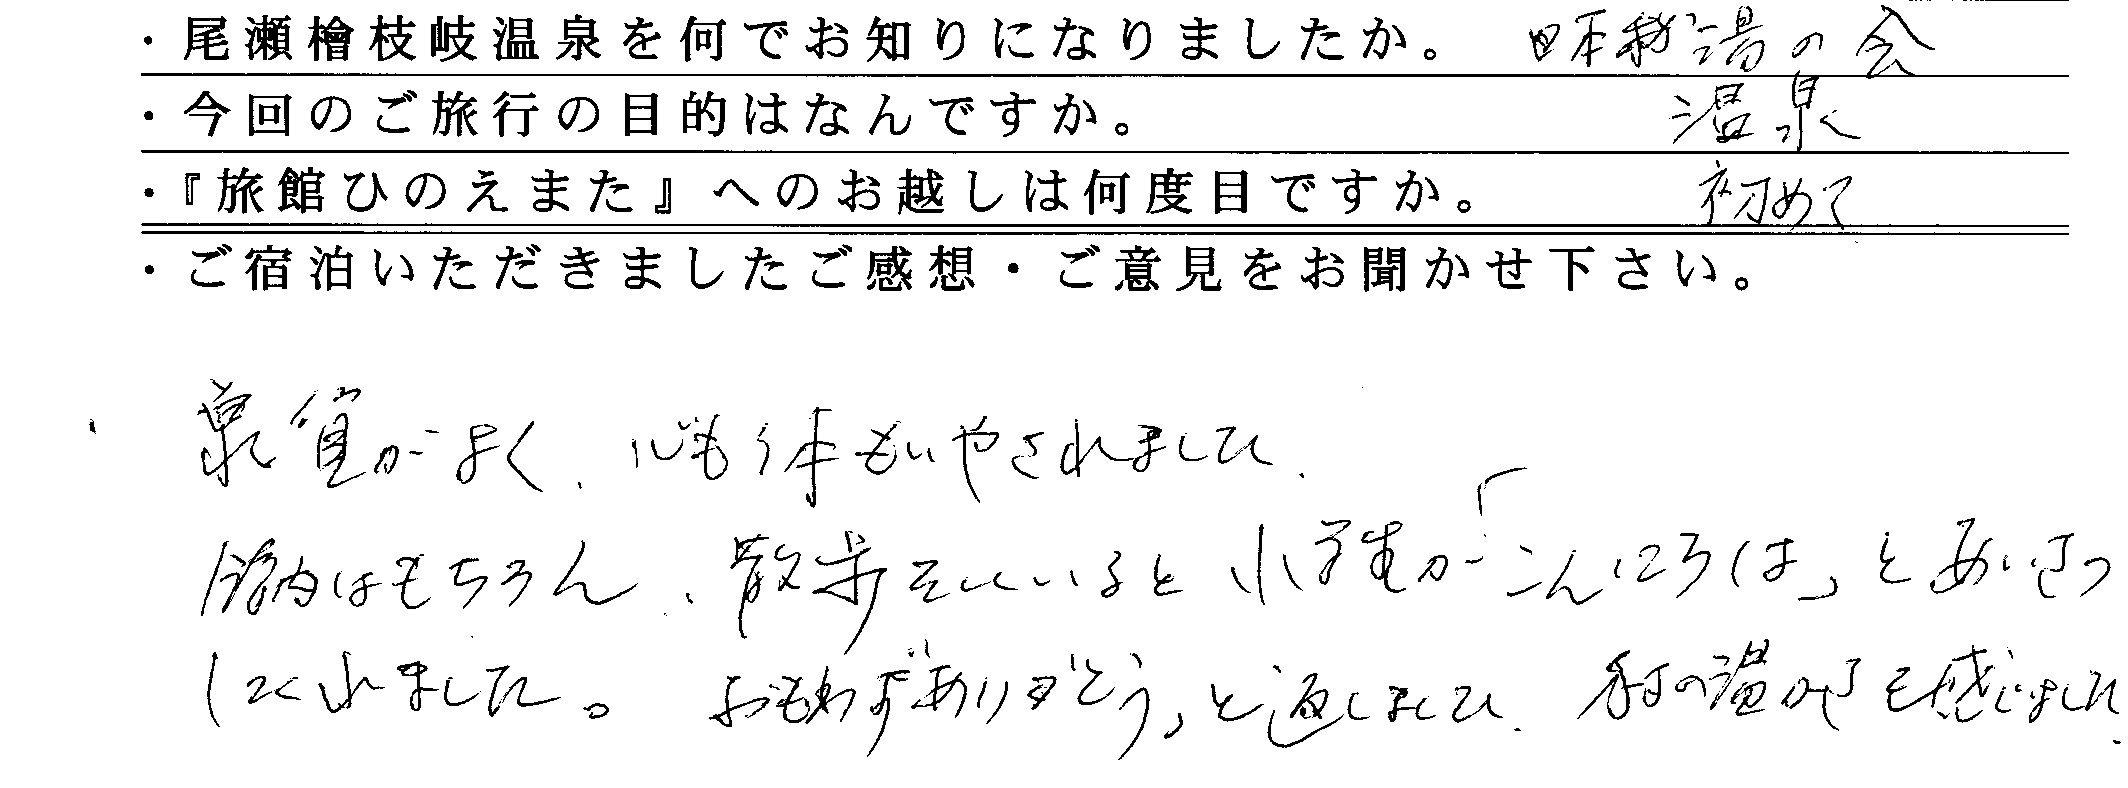 ・尾瀬檜枝岐温泉を何でお知りになりましたか。 日本秘湯の会
・今回のご旅行の目的はなんですか。 温泉
・『旅館ひのえまた』へのお越しは何度目ですか。 初めて
・ご宿泊いただきましたご感想・ご意見をお聞かせ下さい。
泉質がよく、心も体もいやされました。
館内はもちろん、散歩していると小学生が「こんにちは」とあいさつ
してくれました。おもわず"ありがとう"と返しました。村の温かさを感じました。